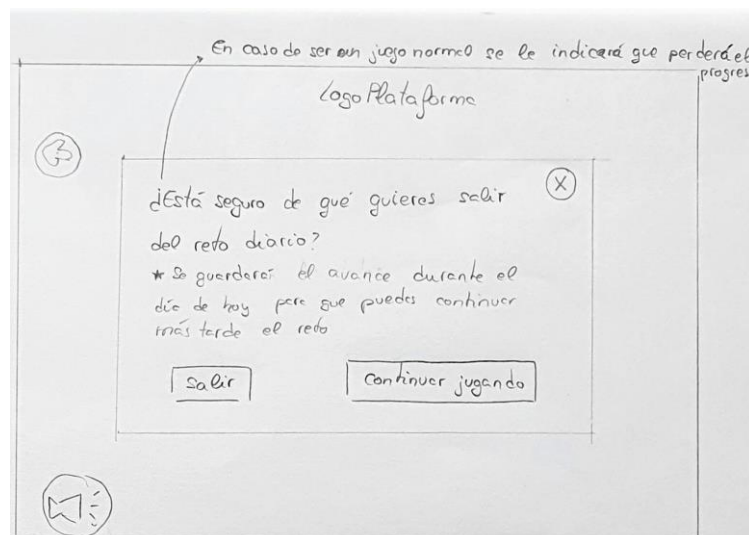 En caso de ser un juego normal se le indicará que perderá el
progres
Logo Plataforma
¿Está seguro de qué quieres salir
del reto diario?
* Se guardará el avance durante el
día de hoy para que puedas continuar
más tarde el reto
Salir
Continuar jugando